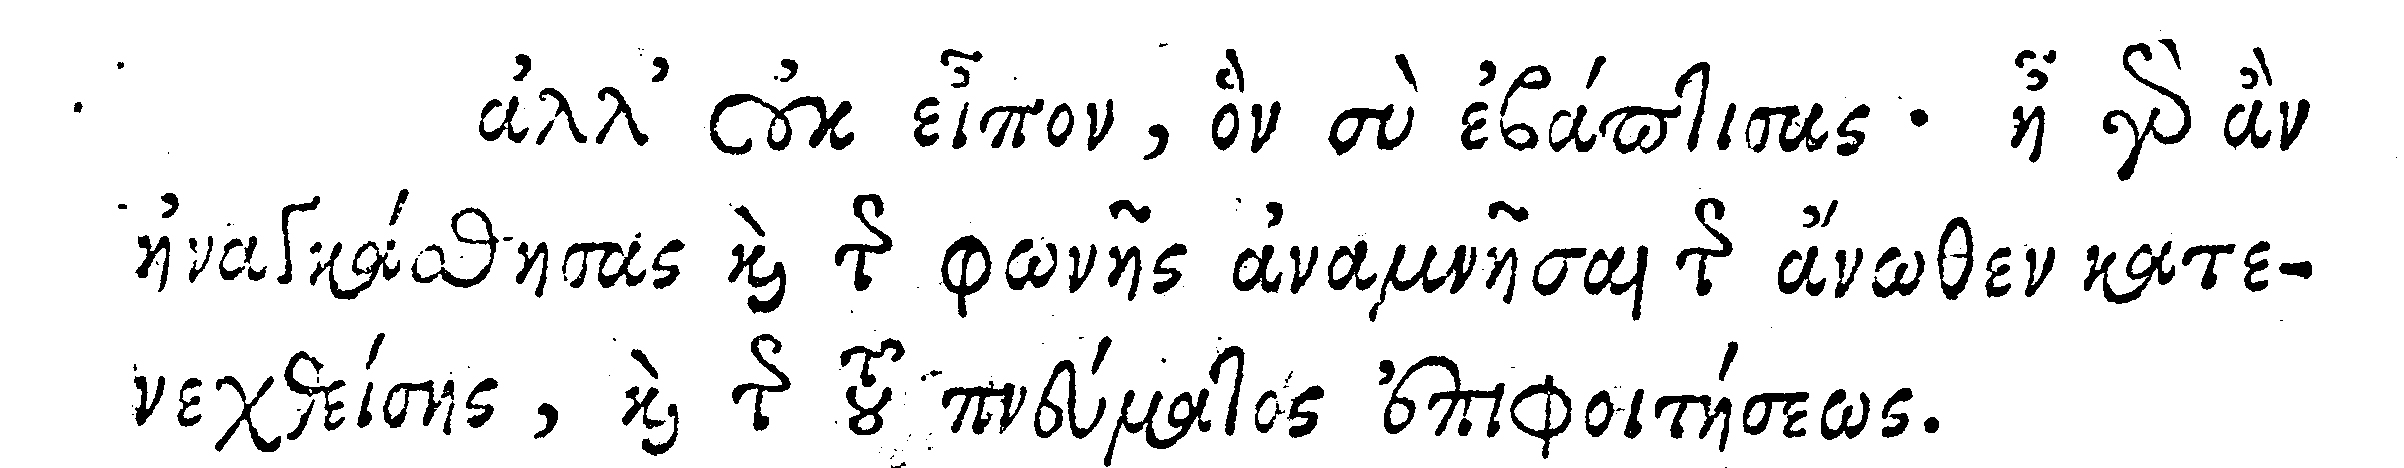 ἀλλ᾽ οὐκ εἶπον, ὃν σὺ ἐβάπτισας. ἦ γὰρ ἂν
ἠναγκάσθησας καὶ τῆς φωνῆς ἀναμνῆσαι τῆς ἄνωθεν κατε-
νεχθείσης, καὶ τῆς τοῦ πνεύματος ἐπιφοιτήσεως.